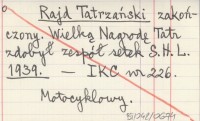 Rajd Tatrzański zakoń-
czony. Wielką Nagrodę Tatr
zdobył zespół setek S.H.L.
1939. — IKC nr 226.
Motocyklowy.